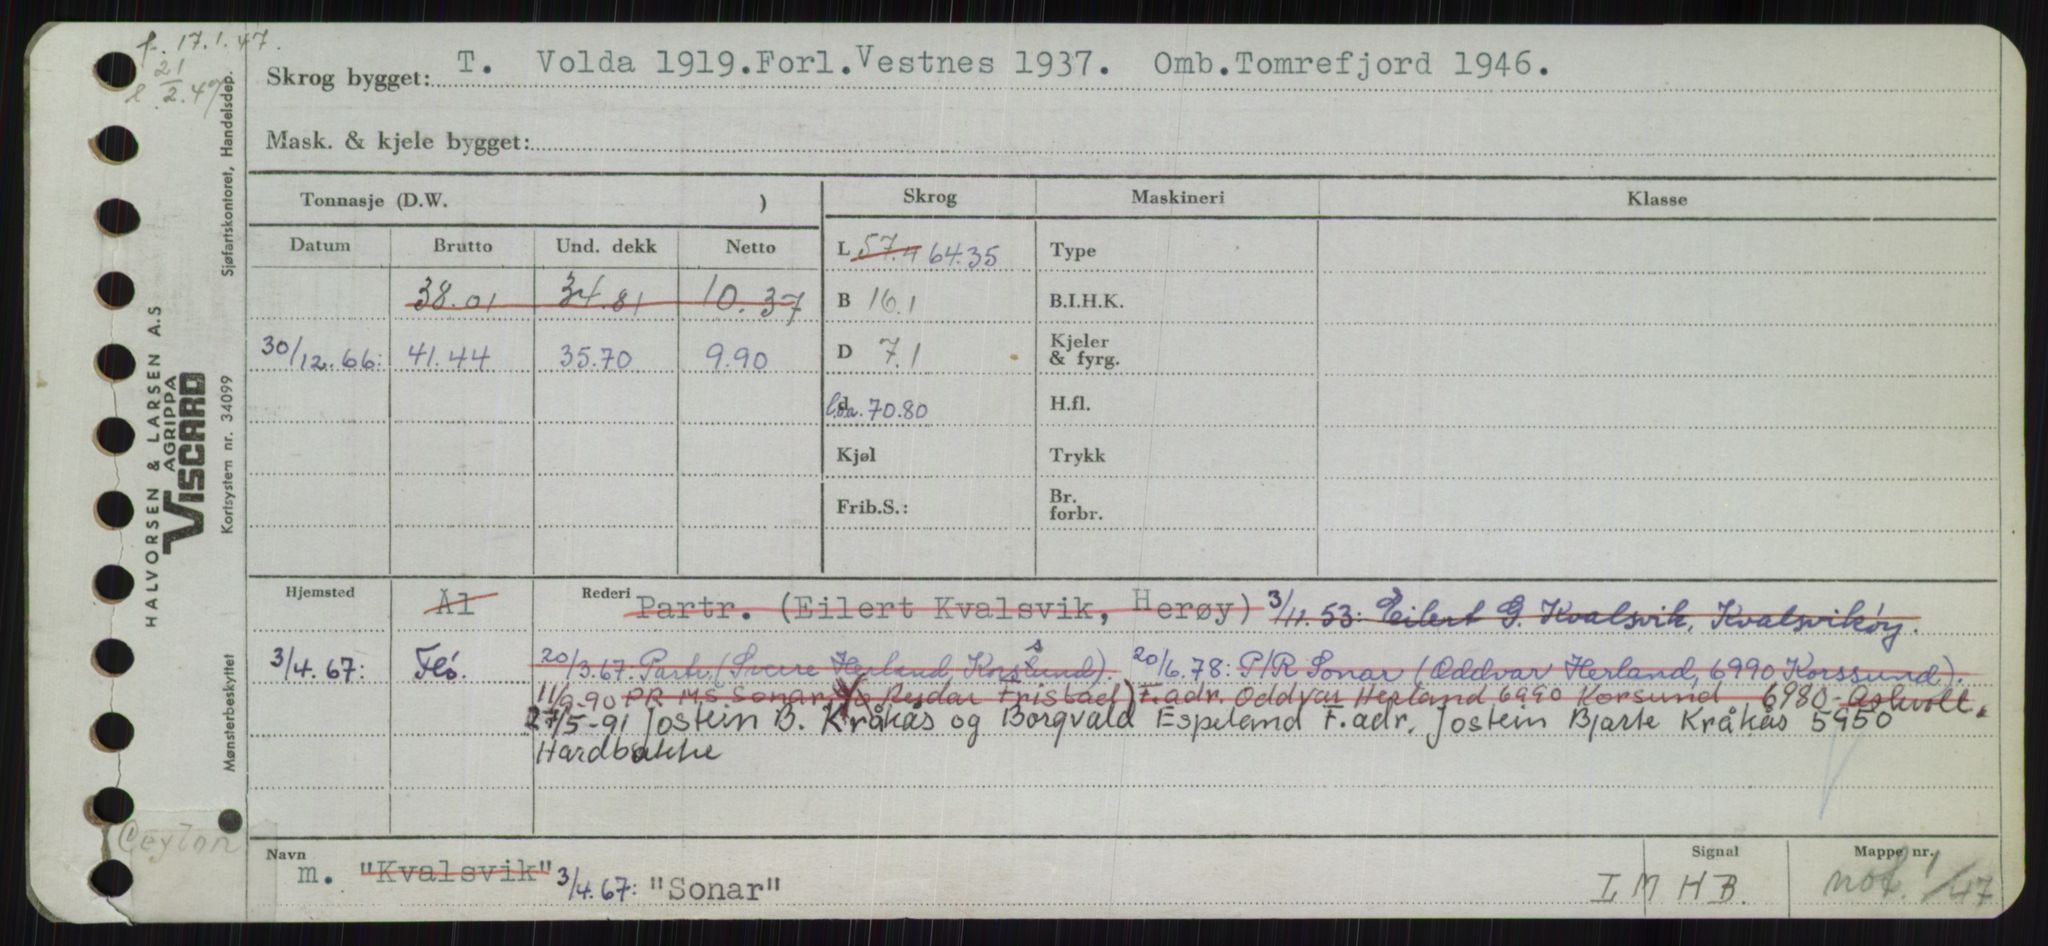 f. 17.1.47.
21
2.47
Skrog bygget: T. Volda 1919. Forl. Vestnes 1937. Omb. Tomrefjord 1946.
Mask. & kjele bygget:
Tonnasje (D.W. )
Skrog
Maskineri
Klasse
Datum Brutto Und. dekk Netto
L 57.4 64.35
Type
38.01 34.81 10.37
B 16.1
B.I.H.K.
30/12.66: 41.44 35.70 9.90
D 7.1
Kjeler
& fyrg.
d l.o.a. 70.80
H.fl.
Kjøl
Trykk
Frib.S.:
Br.
forbr.
Hjemsted Al Rederi Partr. (Eilert Kvalsvik, Herøy) 3/11.53: Eilert G. Kvalsvik, Kvalsvikøy.
3/4.67: Flø. 20/3.67. Partr. (Sverre Herland, Korssund). 20/6.78: P/R Sonar (Oddvar Herland, 6990 Korssund).
11/9-90 PR M.S. Sonar Reidar Fristad) F.adr. Oddvar Herland 6990 Korsund 6980 Askvoll.
27/5-91 Jostein B. Kråkås og Borgvald Espeland F.adr. Jostein Bjarte Kråkås 5950
Hardbakke
Navn m. "Kvalsvik" 3/4.67: "Sonar"
Signal LMHB.
Mappe nr. not. 1/47
Ceylon
HALVORSEN & LARSEN A.S
AGRIPPA
VISCARD
Mønsterbeskyttet Kortsystem nr. 34099 Sjøfartskontoret, Handelsdep.